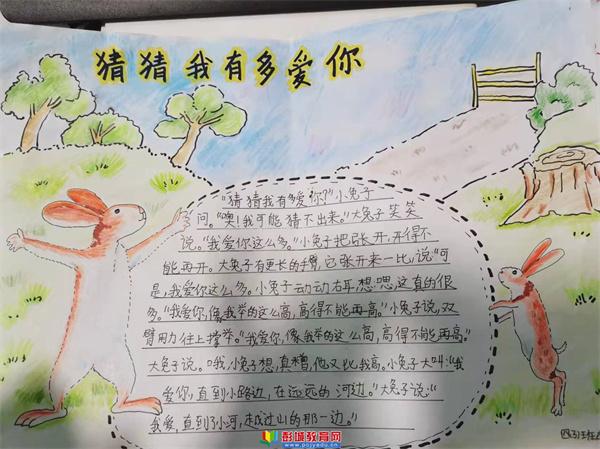 猜猜我有多爱你
"猜猜我有多爱你?"小兔子
问。"噢!我可能猜不出来。"大兔子笑笑
说。"我爱你这么多。"小兔子把张开,开得不
能再开。大兔子有更长的手臂,它张开来一比,说"可
是,我爱你这么多。小兔子动动右耳,想:思,这真的很
多。"我爱你,像我举的这么高,高得不能再高。"小兔子说,双
臂用力往上撑举。"我爱你,像我举的这么高,高得不能再高。"
大兔子说。哦,小兔子想,真糟,他又比我高。小兔子大叫:"我
爱你,直到小路边,在远远的河边。"大兔子说:"
我爱,直到了小河,越过山的那一边。"
彭城教育网
www.pcjyedu.cn